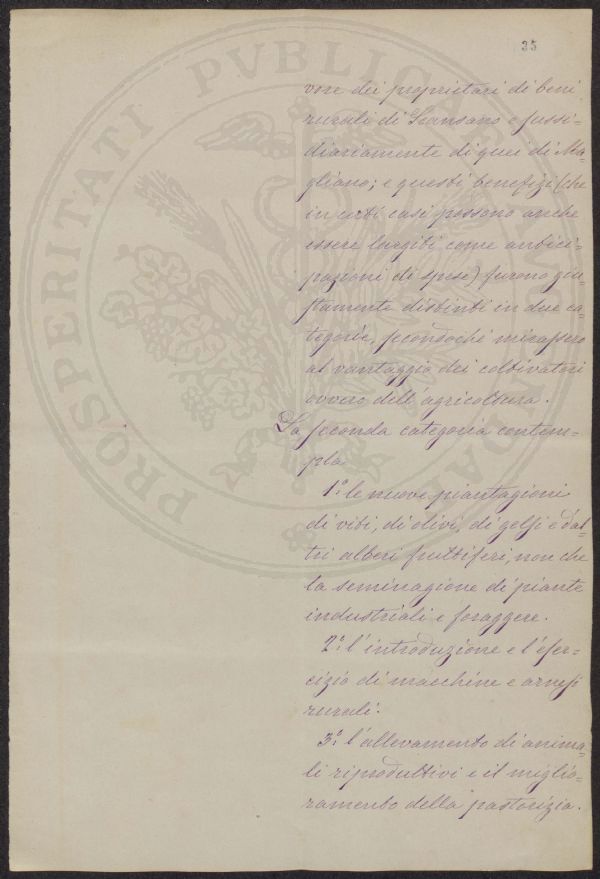 35
vore dei proprietari di beni
rurali di Scansano e sussi=
diariamente di quei di Ma=
gliano; e questi benefizi (che
in certi casi possono anche
essere largiti come antici=
pazioni di spese) furono giu=
stamente distinti in due ca=
tegorie, secondochè mirassero
al vantaggio dei coltivatori
ovvero dell'agricoltura.
La seconda categoria contem=
pla
1.° le nuove piantagioni
di viti, di olivi, di gelsi e d'al=
tri alberi fruttiferi, non che
la seminagione di piante
industriali e foraggere.
2.° l'introduzione e l'eser=
cizio di macchine e arnesi
rurali.
3.° l'allevamento di anima=
li riproduttivi e il miglio=
ramento della pastorizia.
PROSPERITATI PVBLICAE